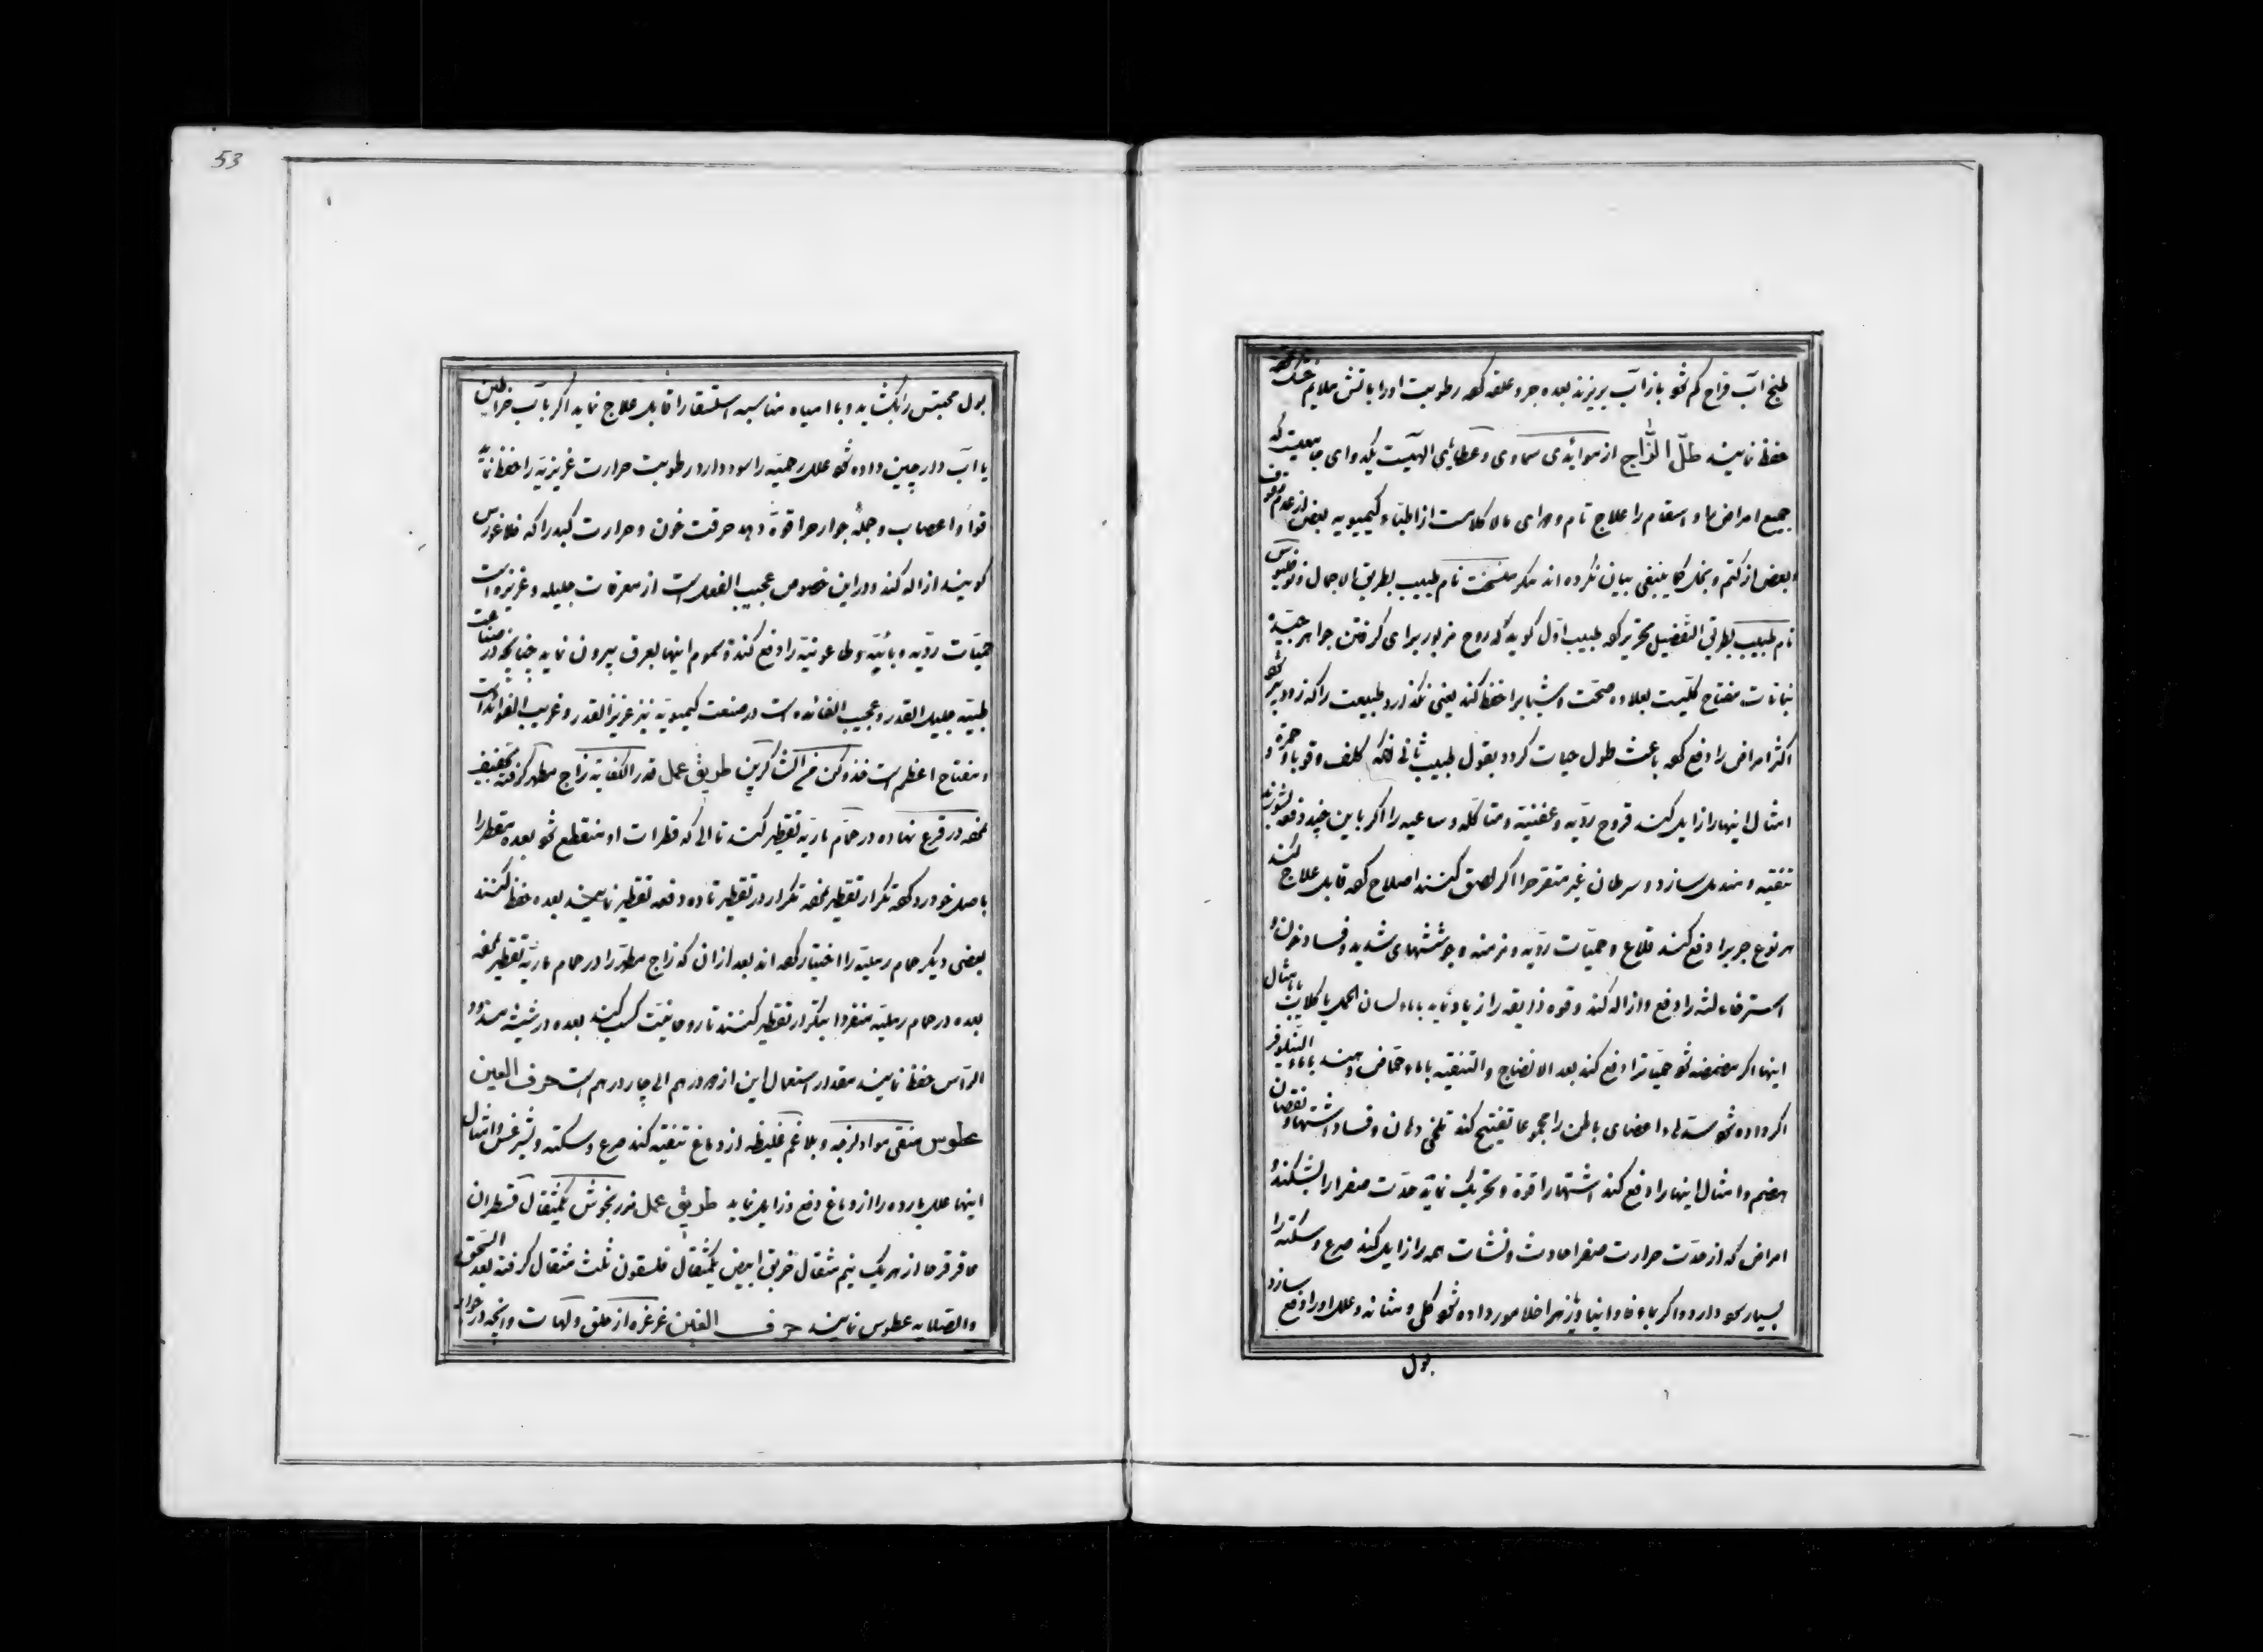 طبخ آب قراح کم شود باز آب بریزند بعده جرد علقه کرده رطوبت او را باتش ملایم خشک کرده
حفظ نمایند طلّ الزّاج از موائدی سماوی و عطایای الهیست یکدوای جامعیست که
جمیع امراض را و اسقام را علاج تام و دوای مالاکلامست از اطباء کیمیویه بعض از عدم وقوف
و بعض از کتم و بخل کما ینبغی بیان نکرده اند مکر نام طبیب بطریق الاجمال و
نام طبیب بطریق التفصیل تحریر کرده طبیب اوّل کوید که روح مزبور برای کرفتن جواهر جمیع
نباتات مفتاح کلّیست بعلاوه صحّت و شبابرا حفظ کند یعنی نکذارد طبیعت را که زود پیر شود
اکثر امراض را دفع کرده باعث طول حیات کردد بقول طبیب ثانی کلف و قوبا و حمره و
امثال اینها را زایل کند قروح ردّیه و عفنیّه و متأکله و ساعیه را اکر باین چند دفعه بشورند
تنقیه و مندمل سازد و سرطان غیر متقرح را اکر لصق کنند اصلاح کرده قابل علاج کند
هر نوع جربرا دفع کند قلاع و حمیّات ردّیه و مزمنه و جوششهای شدید و فساد خون و
استرخاء لثه را دفع و ازاله کند و قوه ذایقه را زیاد نماید بماء لسان الحمل یا کلاب یا امثال
اینها اکر مضمضه شود حمیّاترا دفع کند بعد الانضاج والتنقیه بماء حمّاض دهند بماء النیلوفر
اکر داده شود سدّهاء اعضای باطن را جمیعا تفتیح کند تلخی دهان و فساد اشتها و نقصان
هضم و امثال اینها را دفع کند اشتها را قوة و تحریک نماید حدّت صفرا را بشکند و
امراض که از حدّت حرارت صفرا حادث و نشات همه را زایل کند صرع و سکته را
بسیار سود دارد و اکر بماء داده شود کلی و مثانه و علل او را دفع سازد
بول
53
بول محتبس را بکشاید و با میاه مناسبه استسقا را قابل علاج نماید اکر بآب خراطین
یا آب دارچین داده شود علل رحمیّه را سود دارد رطوبت حرارت غریزیّه را حفظ نماید
قوا و اعصاب و جمله جوارح را قوة دهد حرقت خون و حرارت کبد را که
کویند ازاله کند و در این خصوص عجیب الفعل است از معرقات جلیله و غزیزه است
حمیّات ردّیه و بائیّه و طاعونیّه را دفع کند و سموم اینها بعرق بیرون نماید چنانچه در صناعت
طبیّه جلیل القدر و عجیب الفائده است در صنعت کیمیویّه نیز عزیز القدر و غریب الفوائد است
و مفتاح اعظم است فخذ و کن من الشاکرین طریق عمل قدر الکفایه زاج مطهّر کرفته تجفیف
نموده در قرع نهاده در حمّام ماریّه تقطیر کنند تا الی که قطرات او منقطع شود بعده متقطر را
باصل خود رد کرده تکرار تقطیر نموده تکرار در تقطیر تا ده دفعه تقطیر نمایند بعده حفظ کنند
بعضی دیکر حمام رملیّه را اختیار کرده اند بعد از ان که زاج مطهّر را در حمام ماریّه تقطیر نموده
بعده در حمام رملیّه منفردا بتکرار تقطیر کنند تا روحانیّت کسب کنند بعده در شیشه مسدود
الرّأس حفظ نمایند مقدار استعمال این از دو درهم الی چار درهم است حرف العین
عطوس منقی مواد لزجه و بلاغم غلیظه از دماغ تنقیه کند صرع و سکته و لیثرغس و امثال
اینها علل بارده را از دماغ دفع و زایل نماید طریق عمل مرزنجوش یکمثقال قسطران
عاقرقرحا از هر یک نیم مثقال خربق ابیض یکمثقال ثلث مثقال کرفته بعد السّحق
والصّلایه عطوس نمایند حرف الغین غرغره از حلق و لهات و انچه در جوار